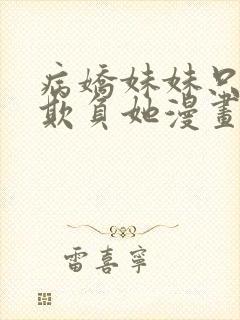 病嬌妹妹只
欺負她漫畫
雷喜寧